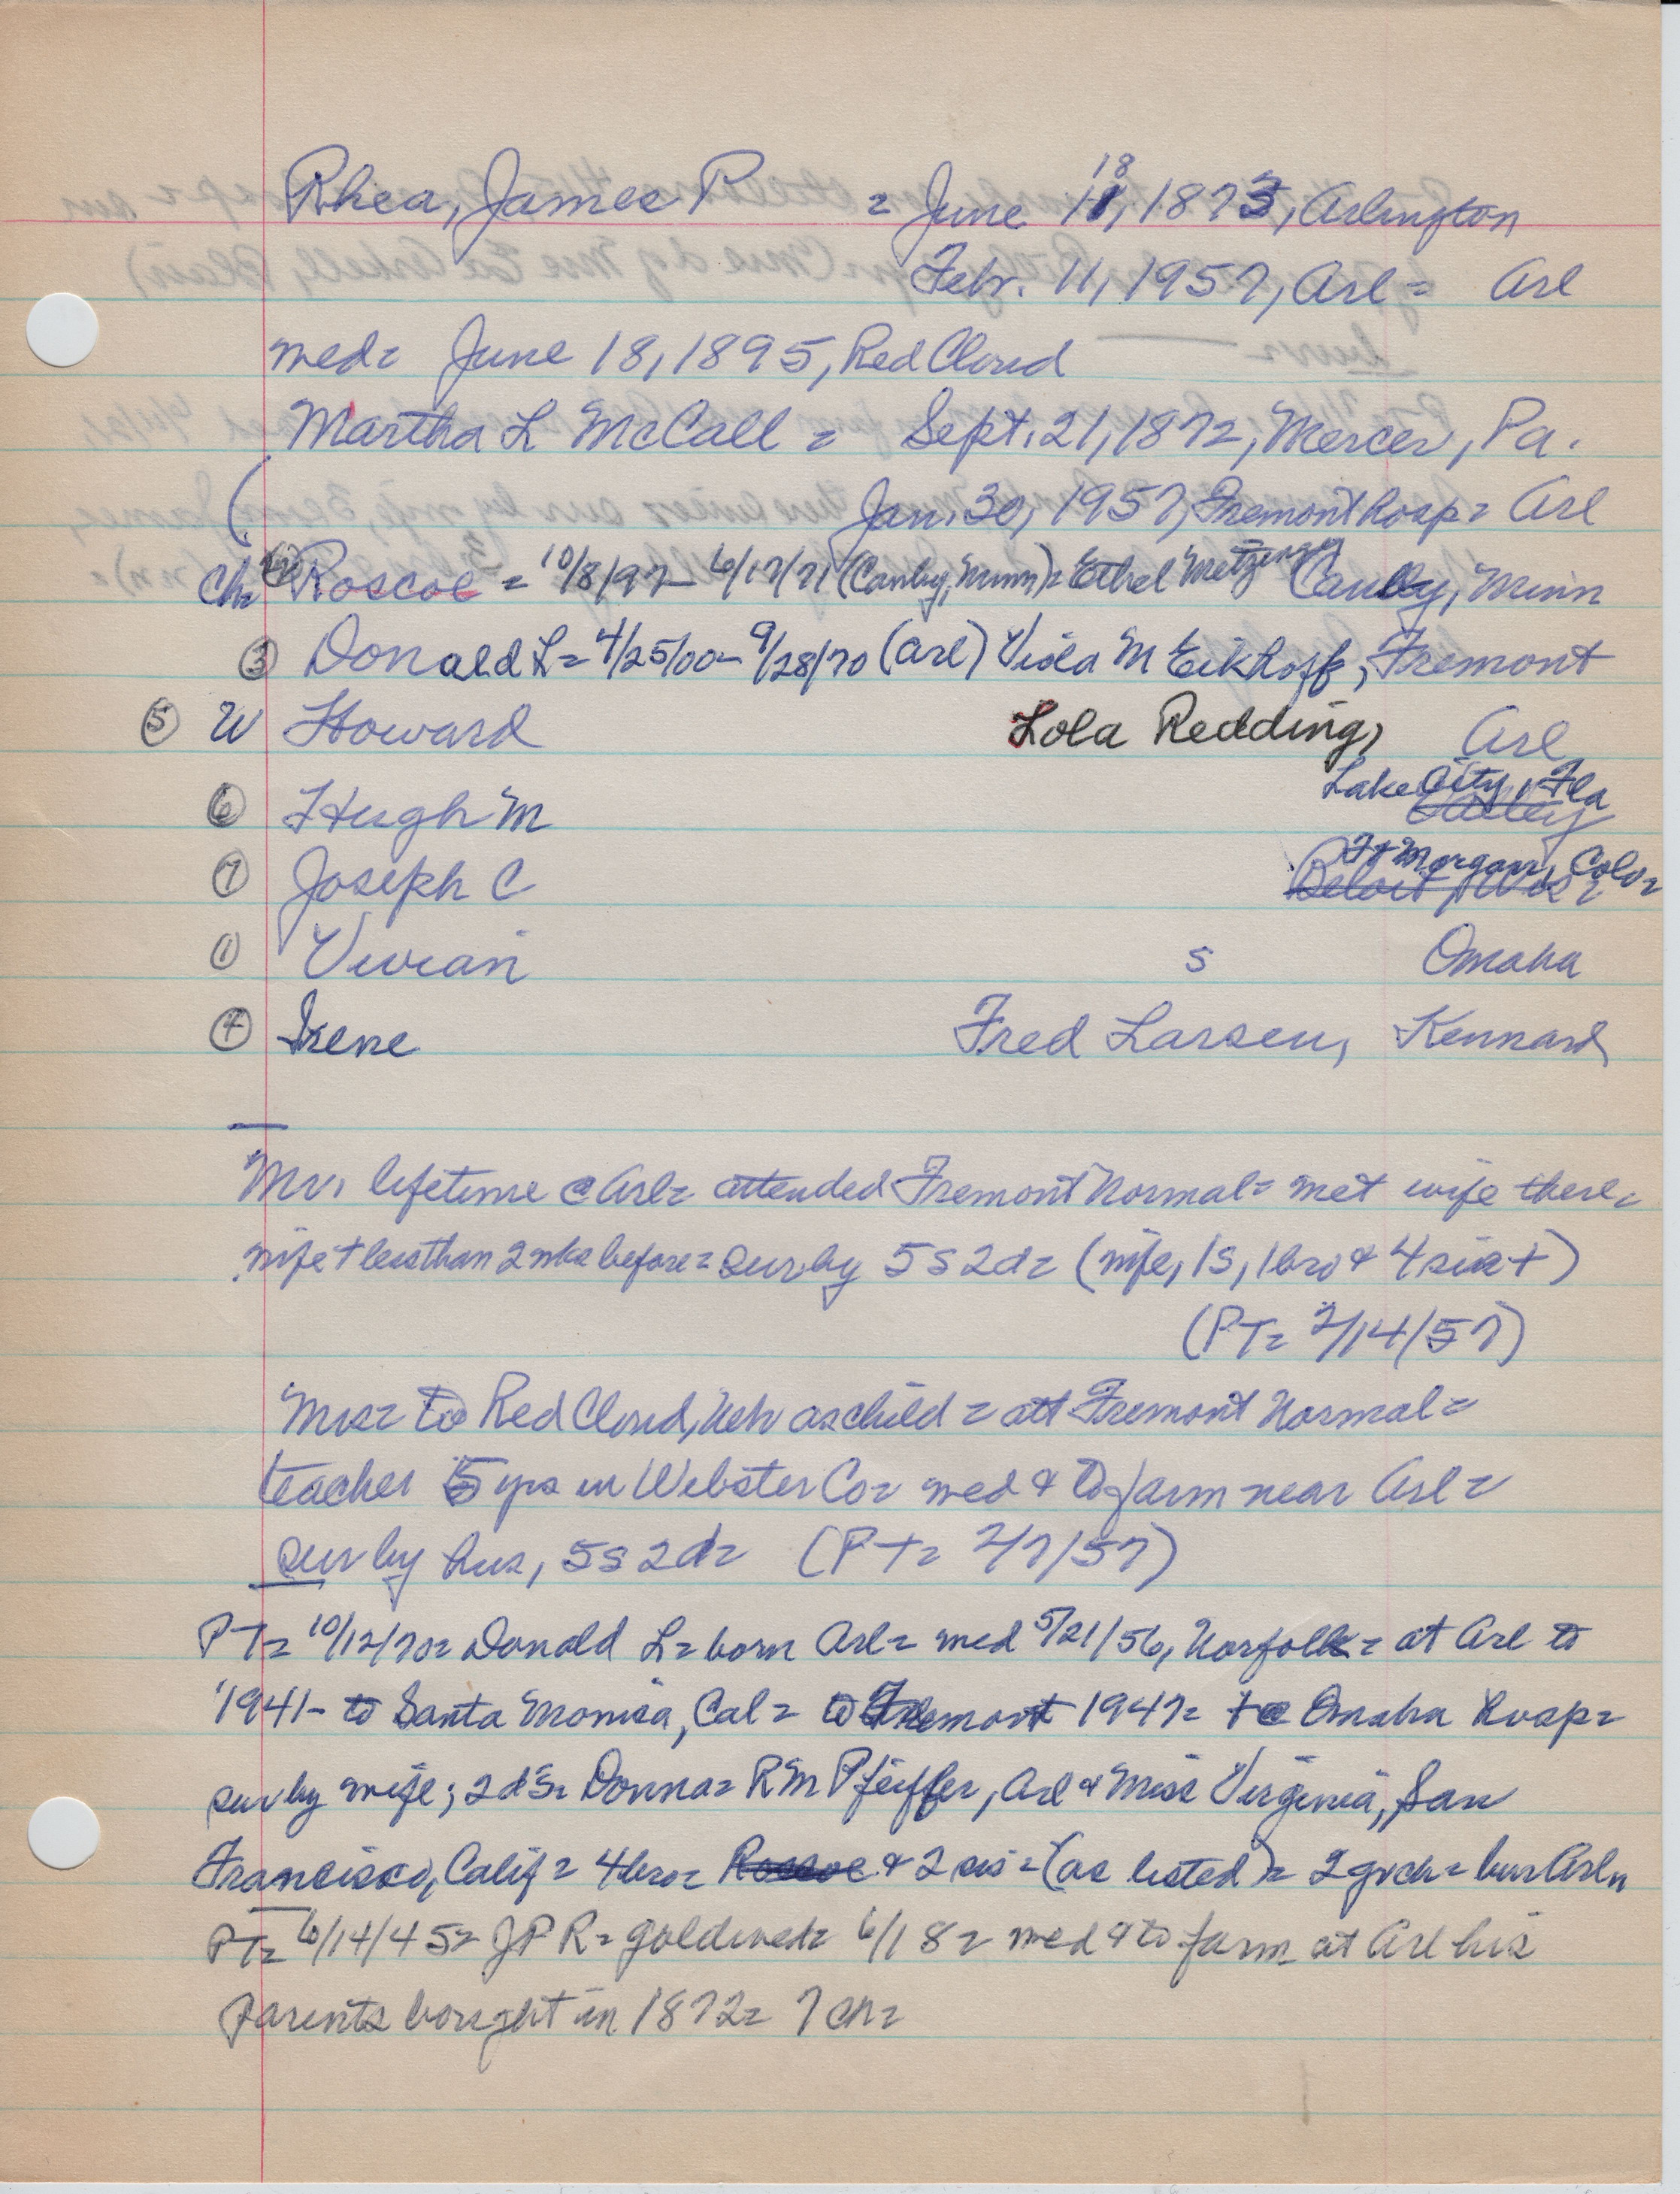 Rhea, James P = June 11, 1873, Arlington
18
Febr. 11, 1957, Arl = Arl
med= June 18, 1895, Red Cloud
Martha L McCall = Sept. 21, 1872, Mercer, Pa.
Jan. 30, 1957, Fremont Hosp= Arl
Ch= (2) Roscoe = 10/8/97 - 6/17/71 (Canby, Minn)= Ethel Metzger Canby, Minn
(3) Donald L = 4/25/00 - 9/28/70 (Arl) Viola M Eikhoff, Fremont
(5) W Howard Lola Redding, Arl
(6) Hugh M Lake City, Fla
(7) Joseph C Ft Morgan, Colo=
Beloit, Wis=
(1) Vivian s Omaha
(4) Irene Fred Larsen, Kennard
Mr. lifetime c Arl= attended Fremont Normal= met wife there=
wife + less than 2 wks before= sur by 5s 2d= (wife, 1s, 1 bro & 4 sis +)
(PT= 2/14/57)
Mrs= to Red Cloud, Neb as child = att Fremont Normal=
teacher 5 yrs in Webster Co= med & to farm near Arl=
sur by hus, 5s 2d= (PT= 2/7/57)
PT= 10/12/70= Donald L= born Arl= med 5/21/56, Norfolk= at Arl to
1941- to Santa Monica, Cal= to Fremont 1947= to Omaha Hosp=
sur by wife; 2 d's= Donna= RM Pfeiffer, Arl & Miss Virginia, San
Francisco, Calif= 4 bro= Roscoe & 2 sis= (as listed)= 2 grch= bur Arl=
PT= 6/14/45= JPR= golden wed= 6/18= med & to farm at Arl his
parents bought in 1872= 7 ch=